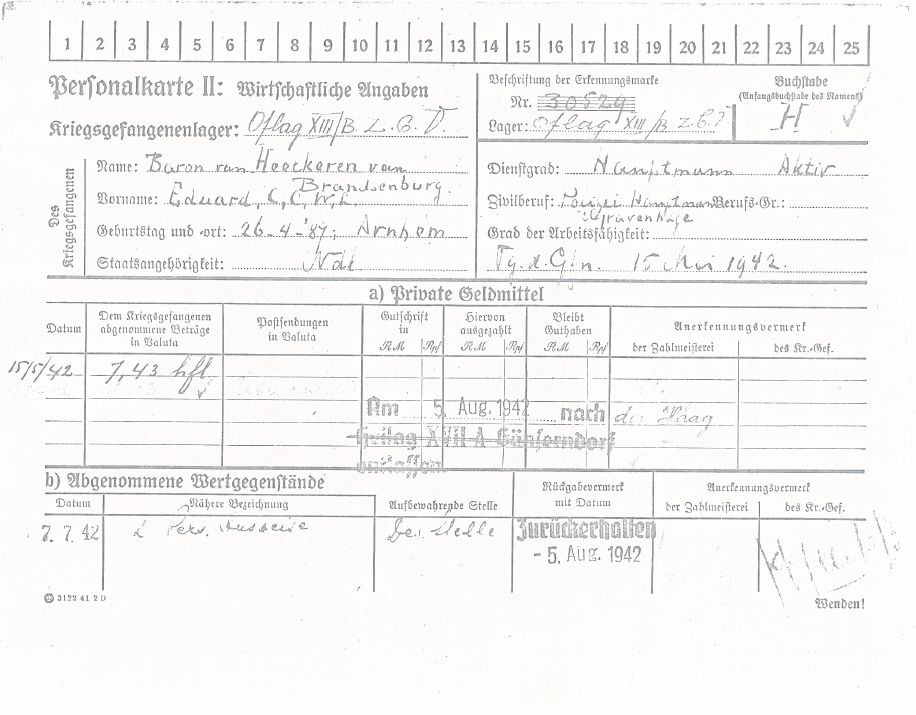 1 2 3 4 5 6 7 8 9 10 11 12 13 14 15 16 17 18 19 20 21 22 23 24 25
Personalkarte II: Wirtschaftliche Angaben
Kriegsgefangenenlager: Oflag XIII/B. Z. G. V.
Beschriftung der Erkennungsmarke
Nr. 30529
Lager: Oflag XIII/B Z.G.
Buchstabe
(Anfangsbuchstabe des Namens)
H
Des Kriegsgefangenen
Name: Baron van Heeckeren van
Brandsenburg.
Vorname: Eduard, C, C, W, L.
Geburtstag und -ort: 26-4-'87, Arnhem
Staatsangehörigkeit: Ndl
Dienstgrad: Hauptmann Aktiv
Zivilberuf: Polizei Hauptman Berufs-Gr.:
's Gravenhage
Grad der Arbeitsfähigkeit:
Tg. d. Gfn. 15 Mei 1942.
a) Private Geldmittel
Datum
Dem Kriegsgefangenen abgenommene Beträge in Valuta
Postsendungen in Valuta
Gutschrift in
RM Rpf
Hiervon ausgezahlt
RM Rpf
Bleibt Guthaben
RM Rpf
Anerkennungsvermerk
der Zahlmeisterei
des Kr.-Gef.
15/5/42 7,43 hfl
Am 5. Aug. 1942 nach den Haag
XVII A
entlassen
b) Abgenommene Wertgegenstände
Datum
Nähere Bezeichnung
Aufbewahrende Stelle
Rückgabevermerk mit Datum
Anerkennungsvermerk
der Zahlmeisterei
des Kr.-Gef.
7.7.42 2 Pers. Ausweise
Zurückerhalten
- 5. Aug. 1942
3122 41 2 D
Wenden!